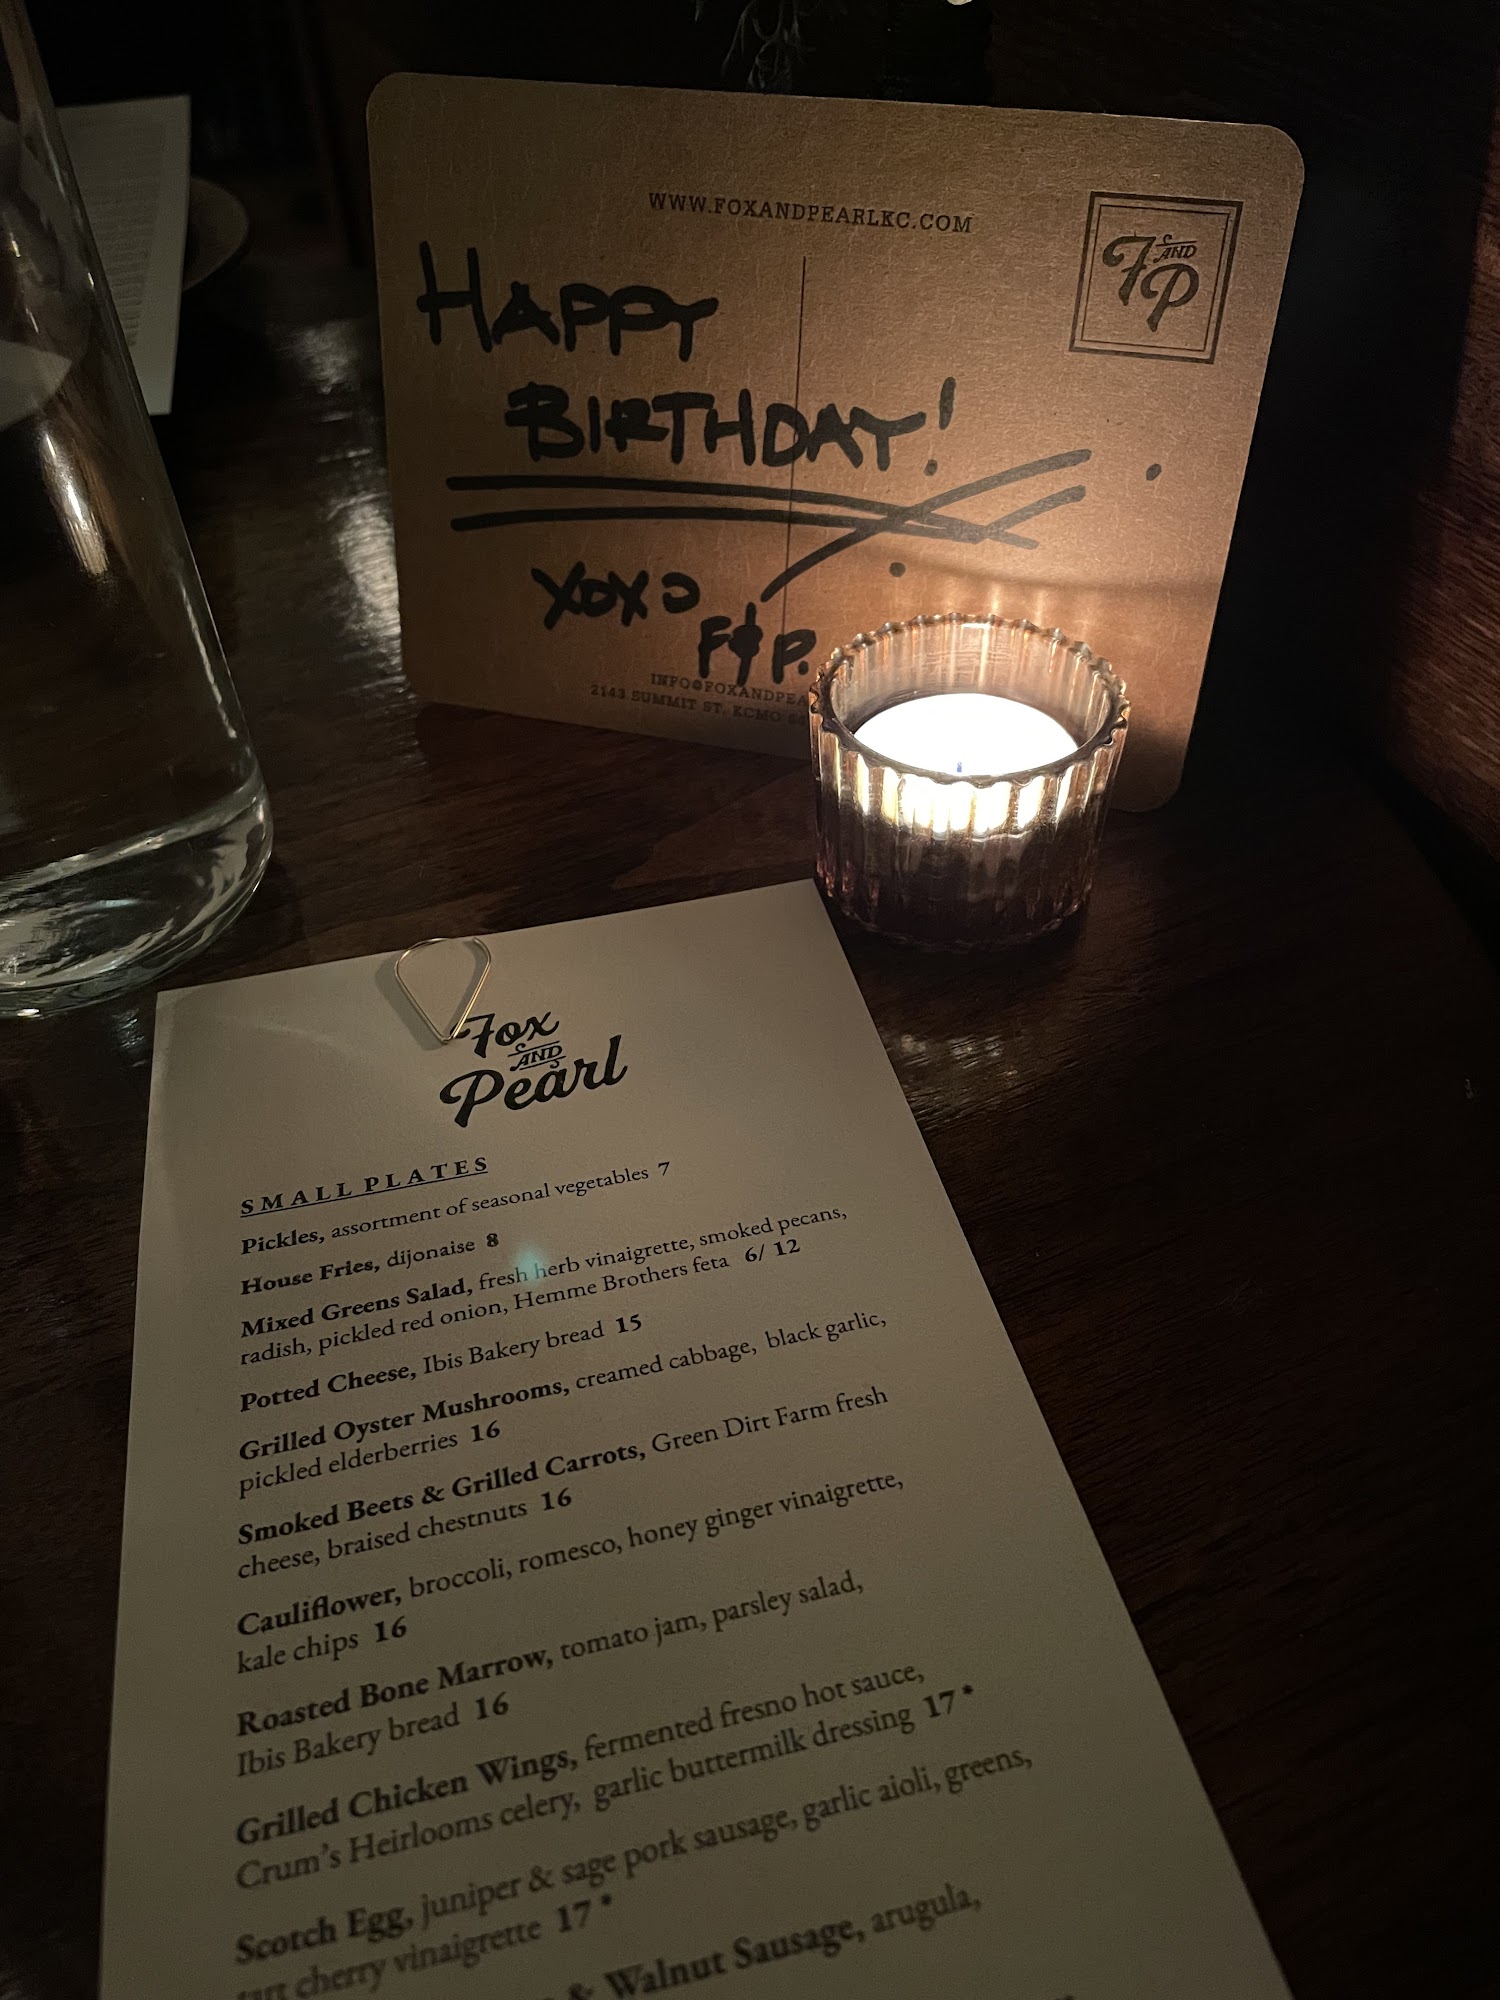 WWW.FOXANDPEARLKC.COM
F AND P
HAPPY
BIRTHDAY!
XOXO
F&P.
INFO@FOXANDPEA
2143 SUMMIT ST. KCMO
Fox
AND
Pearl
SMALL PLATES
Pickles, assortment of seasonal vegetables 7
House Fries, dijonaise 8
Mixed Greens Salad, fresh herb vinaigrette, smoked pecans,
radish, pickled red onion, Hemme Brothers feta 6/ 12
Potted Cheese, Ibis Bakery bread 15
Grilled Oyster Mushrooms, creamed cabbage, black garlic,
pickled elderberries 16
Smoked Beets & Grilled Carrots, Green Dirt Farm fresh
cheese, braised chestnuts 16
Cauliflower, broccoli, romesco, honey ginger vinaigrette,
kale chips 16
Roasted Bone Marrow, tomato jam, parsley salad,
Ibis Bakery bread 16
Grilled Chicken Wings, fermented fresno hot sauce,
Crum's Heirlooms celery, garlic buttermilk dressing 17 *
Scotch Egg, juniper & sage pork sausage, garlic aioli, greens,
tart cherry vinaigrette 17 *
& Walnut Sausage, arugula,